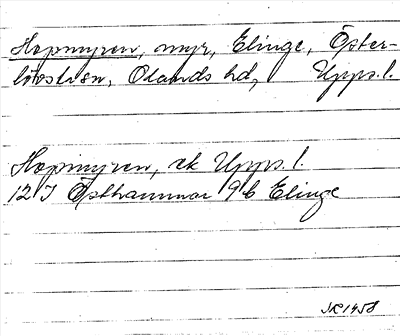 Hopmyren, myr, Elinge, Öster-
lövstasn, Olands hd, Upps.l.
Hopmyren, ek Upps.l.
12 I Östhammar 9 b Elinge
JK 1958